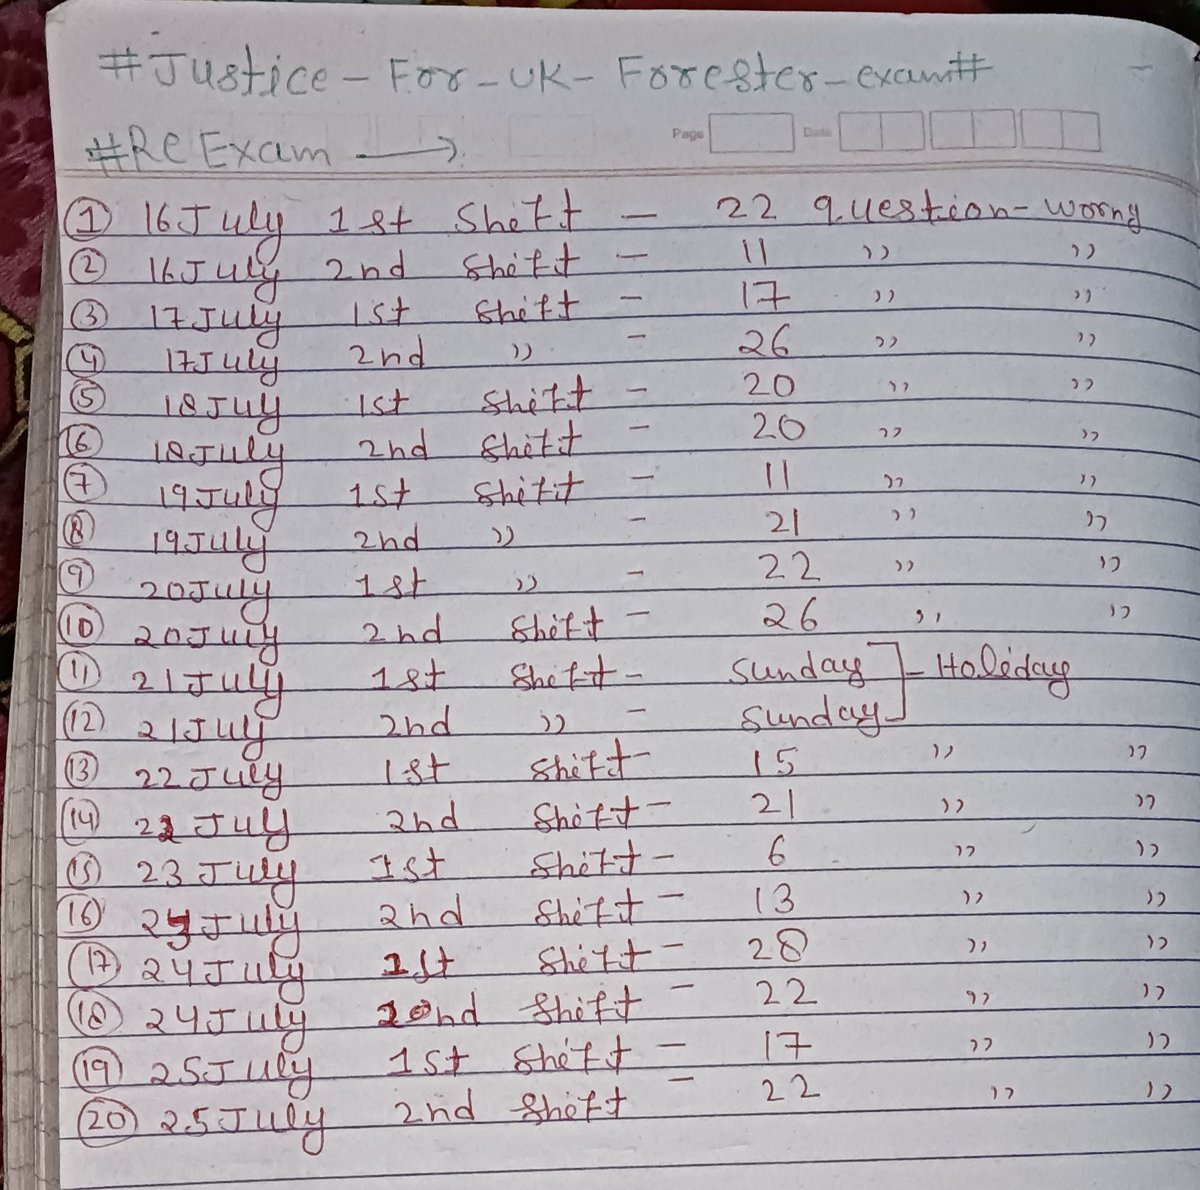 #Justice-For-UK-Forester-exam#
#Re Exam →
Page Date
① 16 July 1st Shift - 22 question-worng
② 16 July 2nd Shift - 11 ,, ,,
③ 17 July 1st Shift - 17 ,, ,,
④ 17 July 2nd ,, - 26 ,, ,,
⑤ 18 July 1st Shift - 20 ,, ,,
⑥ 18 July 2nd Shift - 20 ,, ,,
⑦ 19 July 1st Shift - 11 ,, ,,
⑧ 19 July 2nd ,, - 21 ,, ,,
⑨ 20 July 1st ,, - 22 ,, ,,
⑩ 20 July 2nd Shift - 26 ,, ,,
⑪ 21 July 1st Shift - Sunday - Holiday
⑫ 21 July 2nd ,, - Sunday
⑬ 22 July 1st Shift - 15 ,, ,,
⑭ 22 July 2nd Shift - 21 ,, ,,
⑮ 23 July 1st Shift - 6 ,, ,,
⑯ 23 July 2nd Shift - 13 ,, ,,
⑰ 24 July 1st Shift - 28 ,, ,,
⑱ 24 July 2nd Shift - 22 ,, ,,
⑲ 25 July 1st Shift - 17 ,, ,,
⑳ 25 July 2nd Shift - 22 ,, ,,